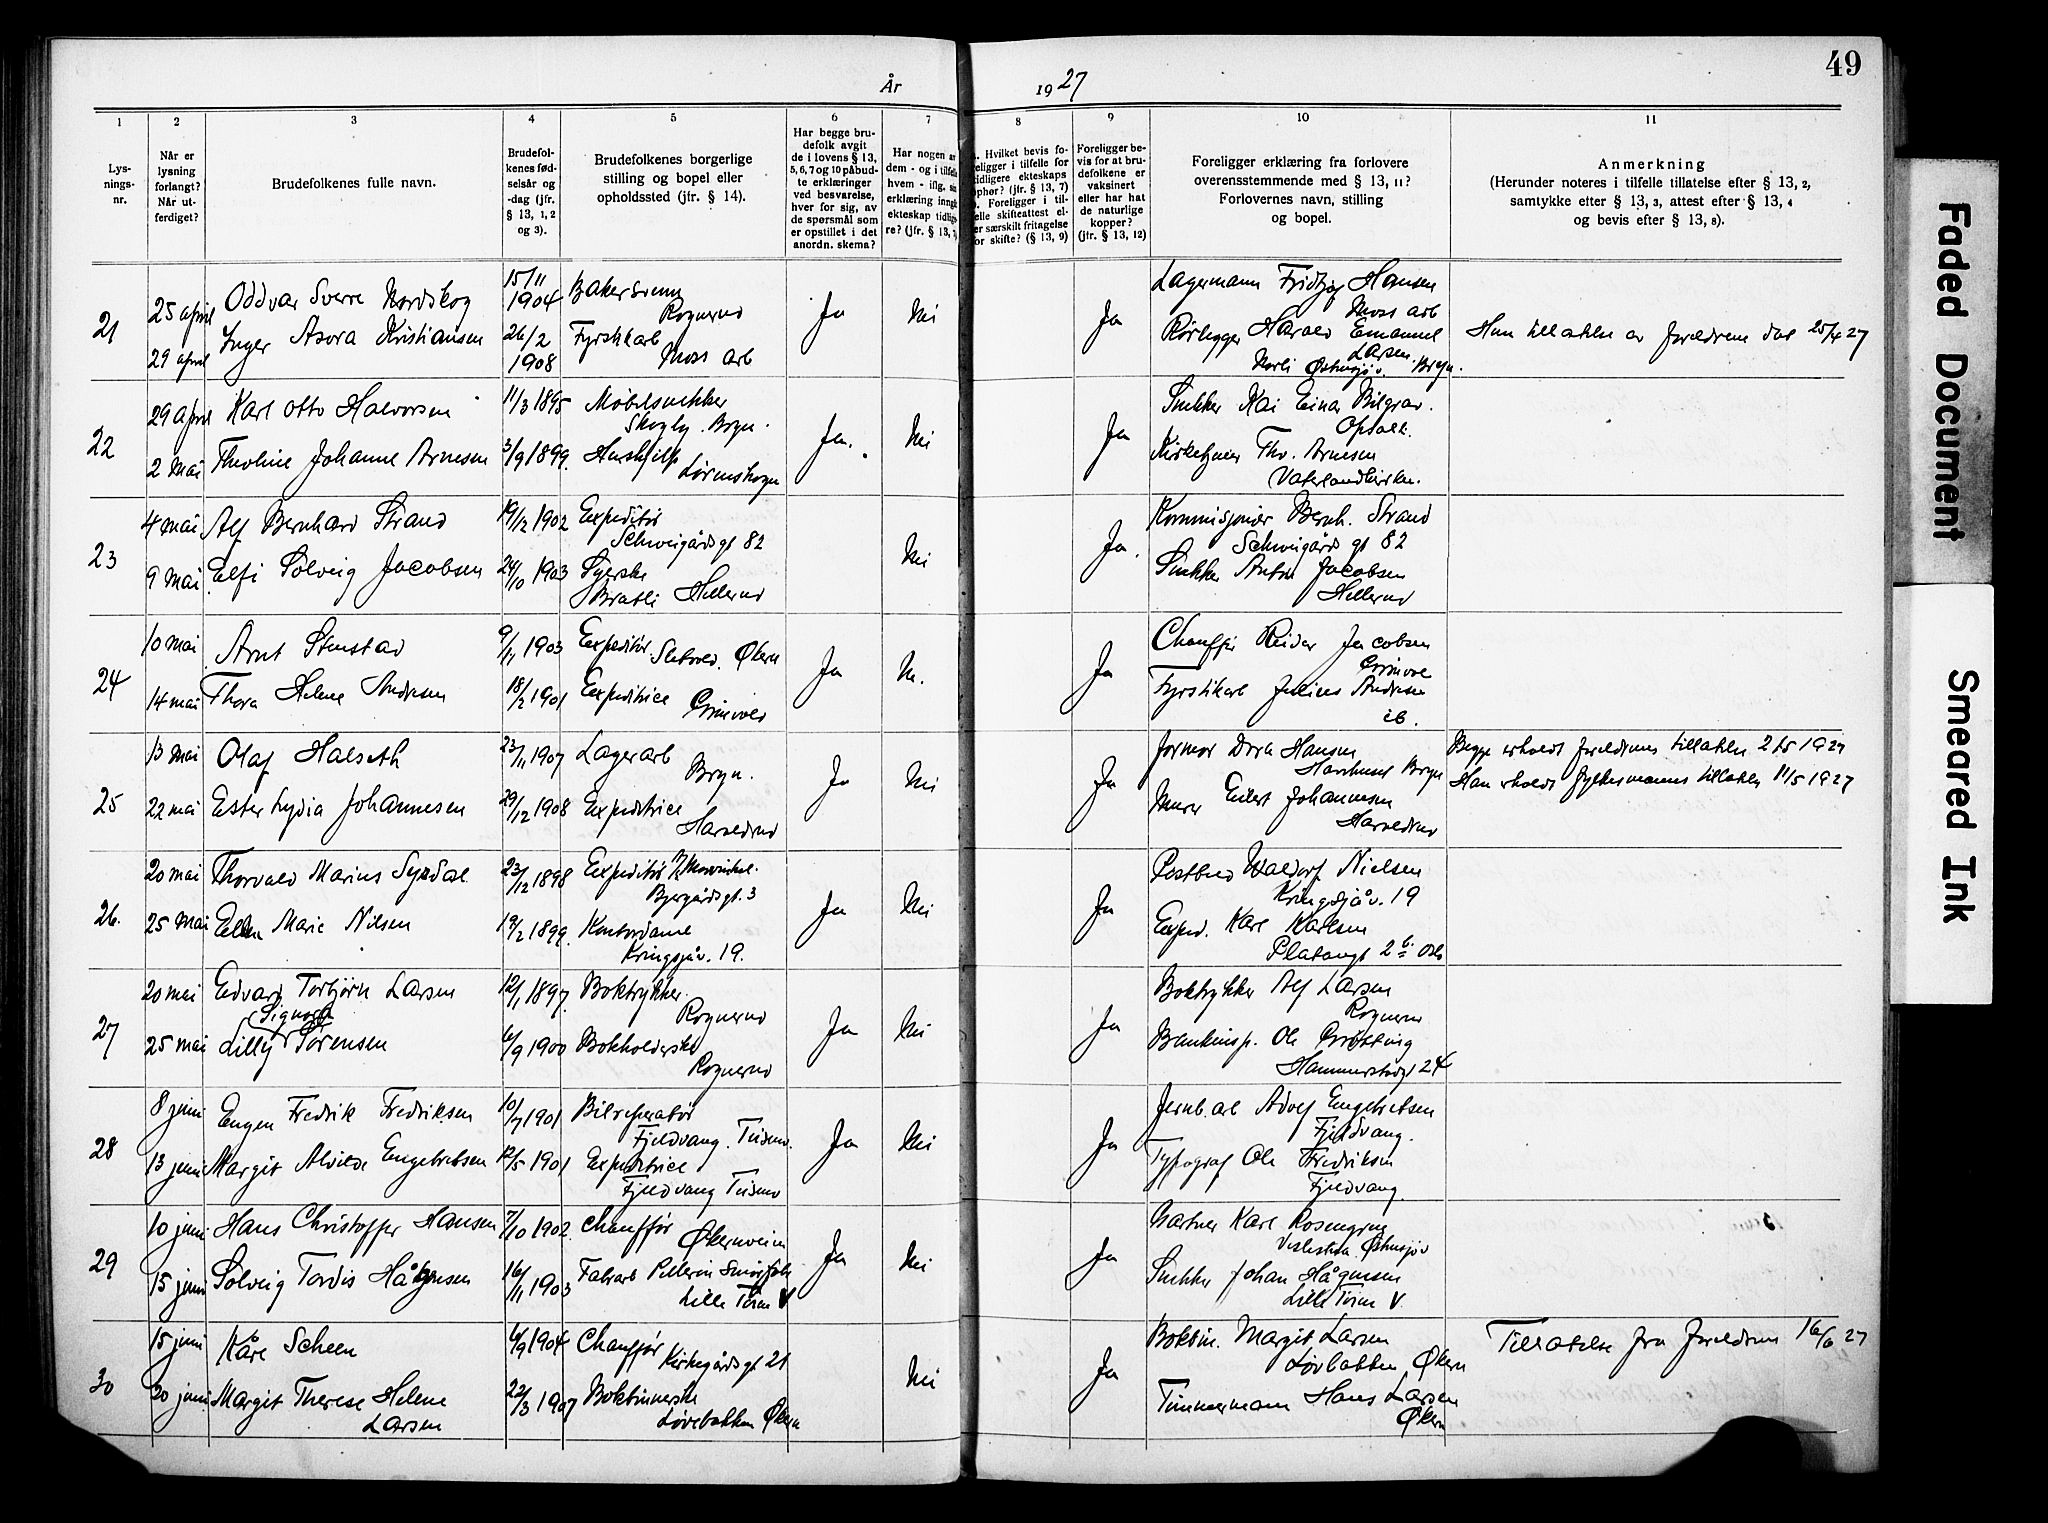 49
År 1927
1 2 3 4 5 6 7 8 9 10 11
Lysningsnr.
Når er lysning forlangt? Når utferdiget?
Brudefolkenes fulle navn.
Brudefolkenes fødselsår og -dag (jfr. § 13, 1, 2 og 3).
Brudefolkenes borgerlige stilling og bopel eller opholdssted (jfr. § 14).
Har begge brudefolk avgit de i lovens § 13, 5, 6, 7 og 10 påbudte erklæringer ved besvarelse, hver for sig, av de spørsmål som er opstillet i det anordn. skema?
Har nogen av dem - og i tilfelle hvem -
erklæring inngå
ekteskap tidlig-
re? (jfr. § 13, 7)
Hvilket bevis fo-
religger i tilfelle for
tidligere ekteskaps
ophør? (jfr. § 13, 7)
Foreligger i til-
felle skifteattest el-
er særskilt fritagelse
for skifte? (§ 13, 9)
Foreligger bevis for at brudefolkene er vaksinert eller har hat de naturlige kopper? (jfr. § 13, 12)
Foreligger erklæring fra forlovere overensstemmende med § 13, 11? Forlovernes navn, stilling og bopel.
Anmerkning
(Herunder noteres i tilfelle tillatelse efter § 13, 2, samtykke efter § 13, 3, attest efter § 13, 4 og bevis efter § 13, 8).
21 25 april Oddvar Sverre Nordskog 15/11 1904 Bakersvenn Rognerud Ja Nei Ja Lagermann Fridtjof Hansen Moss arb
29 april Inger Asora Kristiansen 26/2 1908 Fyrstikarb Moss arb Rørlegger Harald Emanuel Larsen Bryn. Hun tillatelse av foreldrene dat 25/4 27
22 29 april Karl Otto Halvorsen 11/3 1895 Møbelsnekker Skogly. Bryn. Ja. Nei Ja Snekker Kai Einar Bilgrav. Opsall.
2 Mai Theoline Johanne Arnesen 3/9 1899. Hushjelp Lørenskogen Kirketjener Thv. Arnesen Vaterlandkirken.
23 4 mai Alf Bernhard Strand 19/12 1902 Expeditør Schweigårdsgt 82 Nei Ja. Kommisjonær Bernh. Strand Schweigårds gt 82
9 Mai Elfi Solveig Jacobsen 24/10 1903 Syerske Bratli Hellerud Snekker Anton Jacobsen Hellerud
24 10 mai Arnt Stenstad 9/11 1903 Expeditør Økern Ja N. Ja Chauffør Reidar Jacobsen
14 mai Thora Helene Andresen 18/2 1901 Expeditrice Fyrstikarb Julius Andresen ib.
25 13 mai Olaf Halseth 23/11 1907 Lagerarb Bryn. Ja Nei Ja Jormor Dora Hansen Bryn Begge erholdt foreldrenes tillatelse 2/5 1927
22 mai Ester Lydia Johannesen 29/12 1908 Expeditrice Haraldrud Murer Eilert Johannesen Haraldrud Han erholdt fylkesmannens tillatelse 11/5 1927
26. 20 mai Thorvald Marius Syrdal 23/12 1898 Expeditør Bjergårdsgt. 3 Ja Nei Ja Postbud Waldorf Nielsen Kringsjåv. 19
25 Mai Ellen Marie Nilsen 19/2 1899. Kontordame Kringsjåv. 19. Exped. Karl Karlsen Platangt 2 b. Oslo
27 20 mai Edvard Torbjørn Larsen 12/1 1897 Boktrykker. Rognerud Ja Nei Ja Boktrykker Alf Larsen Rognerud
25 mai Lilly (Signora) Sørensen 6/9 1900 Bokholderske Rognerud Bankinsp. Ole Grøtting Hammerstadgt 24
28 8 juni Eugen Fredrik Fredriksen 10/7 1901 Bilreperatør Fjeldvang. Teisen. Ja Nei Ja Jernb. arb Adolf Engebretsen Fjeldvang.
13 juni Margit Alvilde Engebretsen 12/5 1901 Expeditrice Fjeldvang Teisen Typograf Ole Fredriksen Fjeldvang.
29 10 juni Hans Christoffer Hansen 7/10 1902. Chauffør Økernveien Ja Nei Ja Gartner Karl Rosengren Østensjøv
15 juni Solveig Tordis Hågensen 16/11 1903 Fabrarb Pellerin Smørfabr Lille Tøien V Snekker Johan Hågensen Lille Tøien V.
30 15 juni Kåre Scheen 6/9 1904 Chauffør Kirkegårdsgt 21 Nei Ja Bokbin. Margit Larsen Løvbakken Økern Tillatelse fra foreldrene 16/6 27
20 juni Margit Therese Helene Larsen 22/3 1907 Bokbinnerske Løvebakken Økern Tømmermann Hans Larsen Økern
Faded Document
Smeared Ink